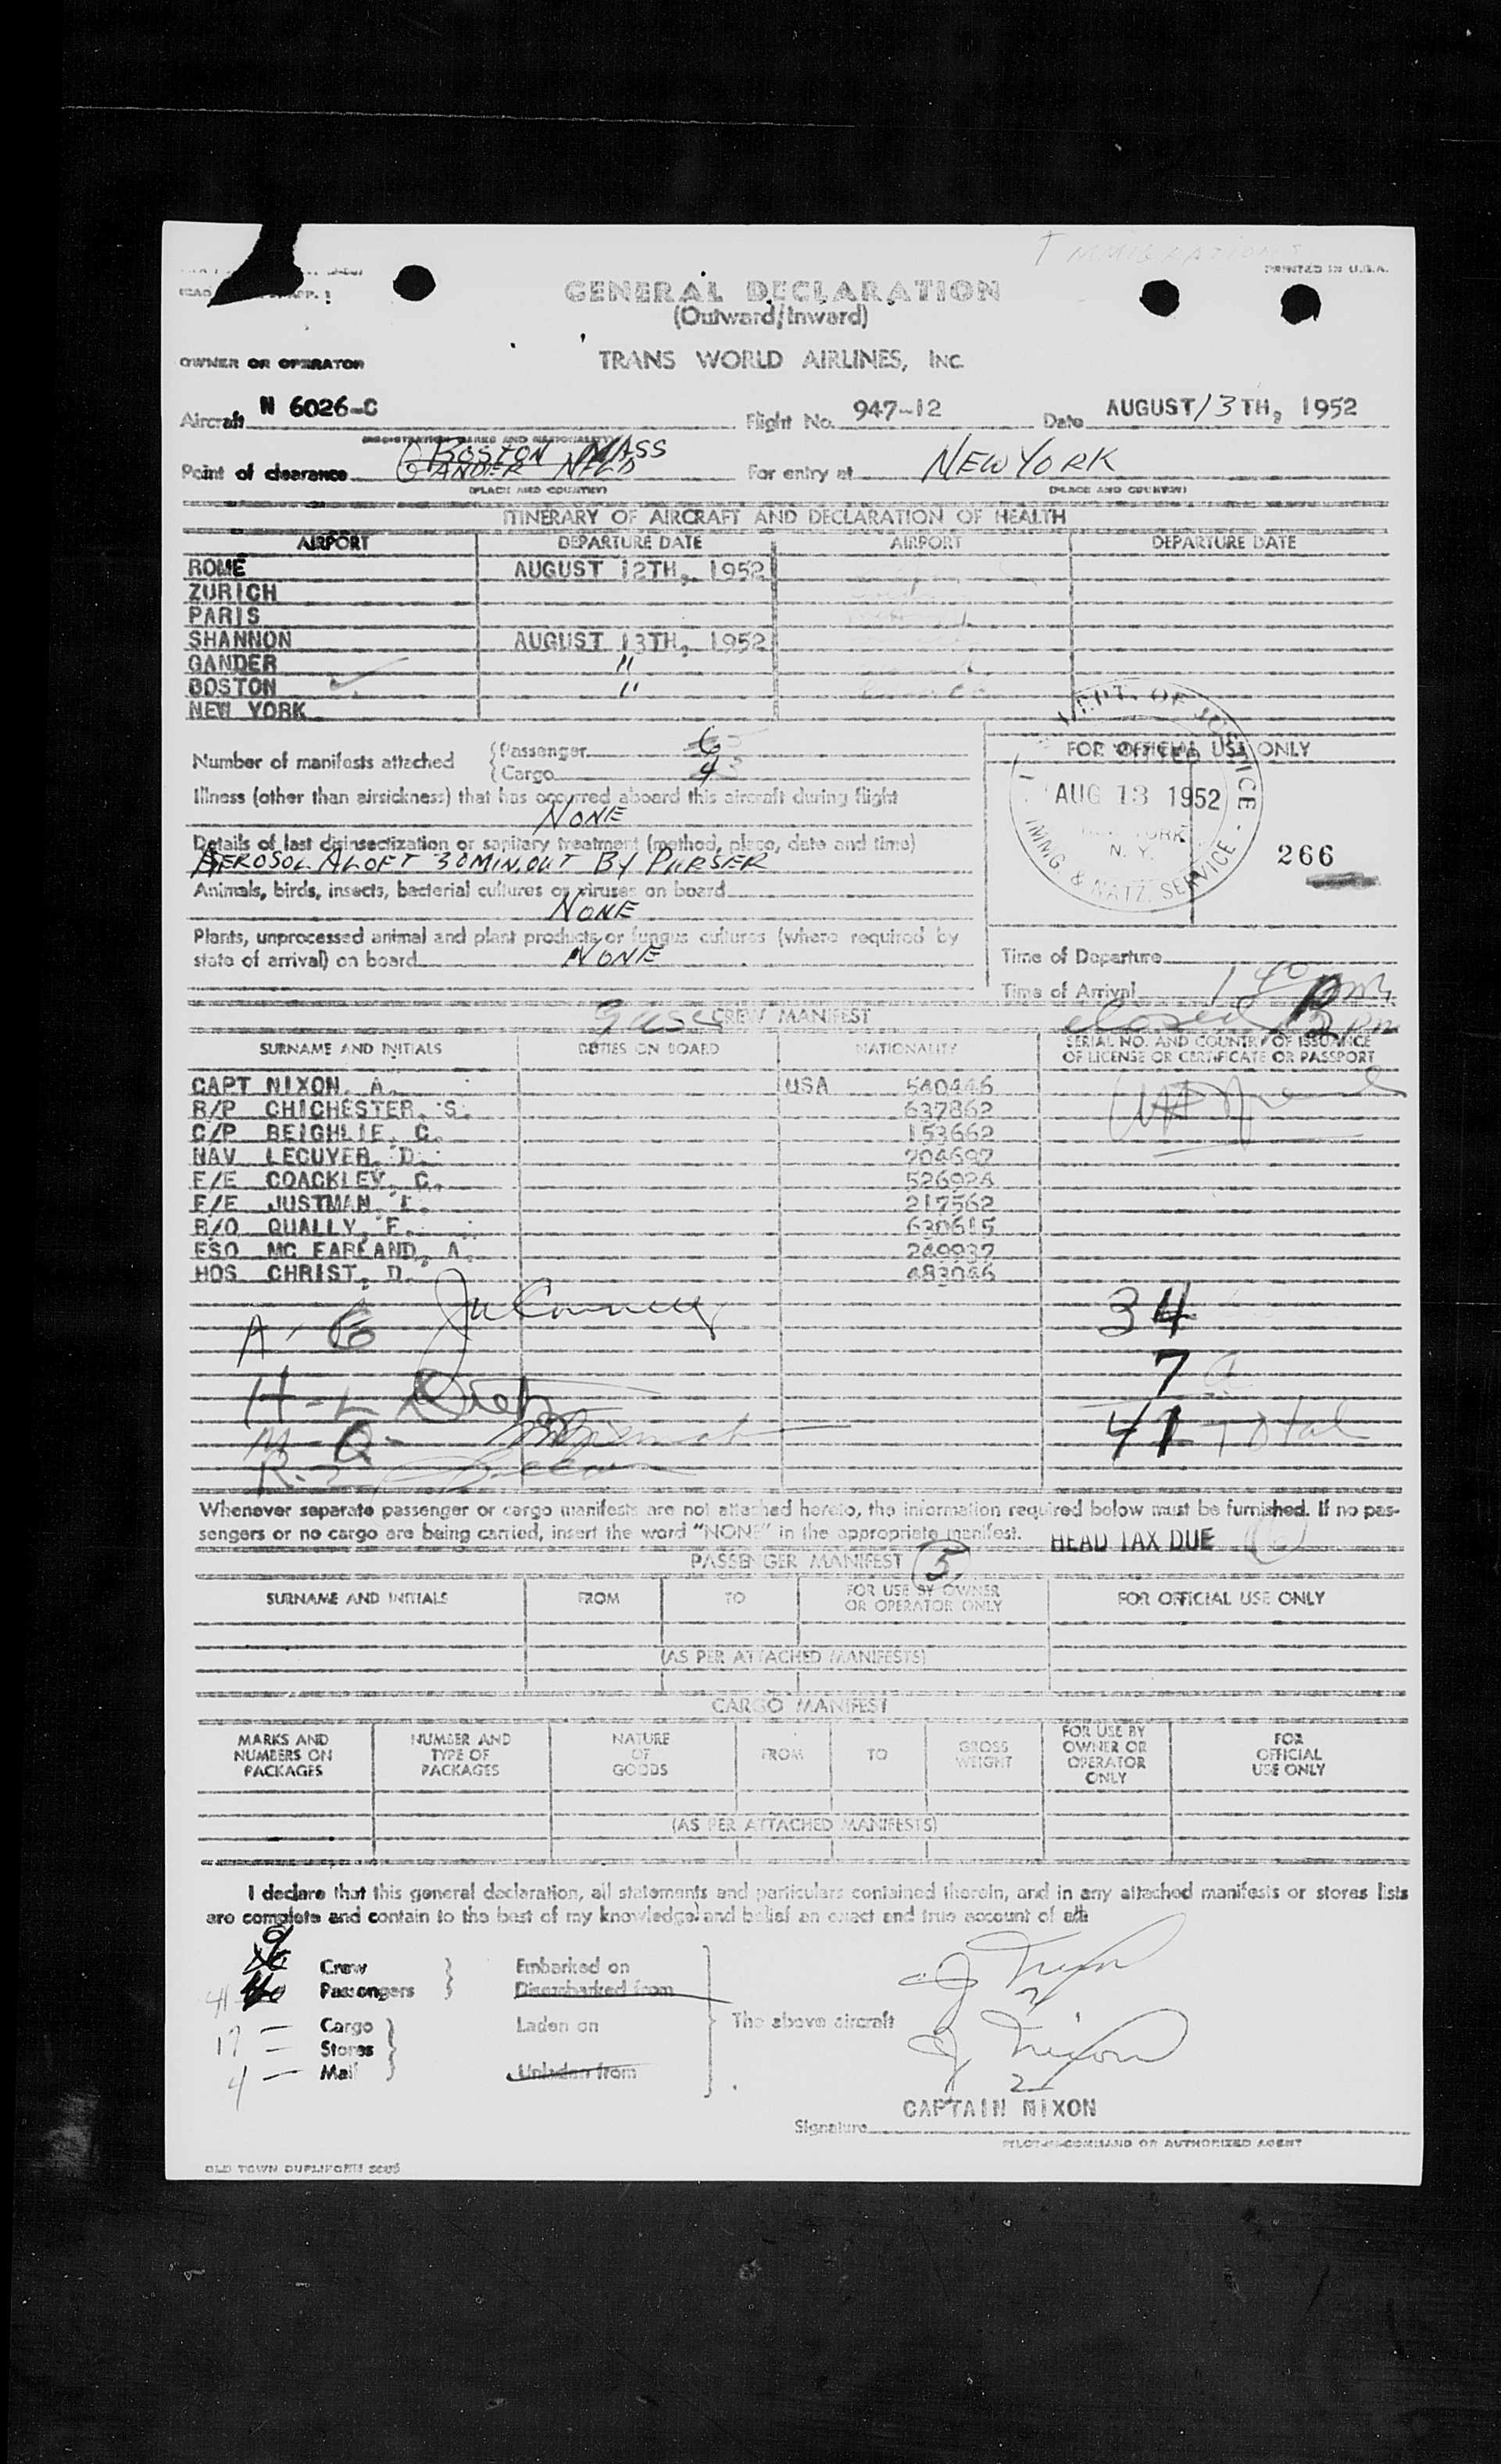 IMMIGRATION
PRINTED IN U.S.A.
GENERAL DECLARATION
(Outward/Inward)
OWNER OR OPERATOR TRANS WORLD AIRLINES, INC.
Aircraft N 6026-C Flight No. 947-12 Date AUGUST 13TH, 1952
(REGISTRATION MARKS AND NATIONALITY)
BOSTON MASS
Point of clearance GANDER NFLD For entry at NEW YORK
(PLACE AND COUNTRY) (PLACE AND COUNTRY)
ITINERARY OF AIRCRAFT AND DECLARATION OF HEALTH
AIRPORT DEPARTURE DATE AIRPORT DEPARTURE DATE
ROME AUGUST 12TH, 1952
ZURICH
PARIS
SHANNON AUGUST 13TH, 1952
GANDER "
BOSTON "
NEW YORK
Number of manifests attached
(Passenger 6
(Cargo 4
FOR OFFICIAL USE ONLY
DEPT. OF JUSTICE
AUG 13 1952
N. Y.
IMMG. & NATZ. SERVICE
266
Illness (other than airsickness) that has occurred aboard this aircraft during flight
NONE
Details of last disinsectization or sanitary treatment (method, place, date and time)
AEROSOL ALOFT 30 MIN. OUT BY PURSER
Animals, birds, insects, bacterial cultures or viruses on board
NONE
Plants, unprocessed animal and plant products or fungus cultures (where required by
state of arrival) on board NONE
Time of Departure
Time of Arrival 1 40 pm
closed 2 pm
CREW MANIFEST
SURNAME AND INITIALS DUTIES ON BOARD NATIONALITY SERIAL NO. AND COUNTRY OF ISSUANCE
OF LICENSE OR CERTIFICATE OR PASSPORT
CAPT NIXON, A. USA 540446
R/P CHICHESTER, S. 637862
C/P BEIGHLIE, C. 153662
NAV LECUYER, D. 704697
F/E COACKLEY, C. 526924
F/E JUSTMAN, I. 217562
R/O QUALLY, F. 630615
FSO MC FARLAND, A. 249937
HOS CHRIST, D. 483046
A - 6
34
7
H - L
41 Total
M - Q -
R - Z
Whenever separate passenger or cargo manifests are not attached hereto, the information required below must be furnished. If no pas-
sengers or no cargo are being carried, insert the word "NONE" in the appropriate manifest.
HEAD TAX DUE (6)
PASSENGER MANIFEST 5
SURNAME AND INITIALS FROM TO FOR USE BY OWNER
OR OPERATOR ONLY FOR OFFICIAL USE ONLY
(AS PER ATTACHED MANIFESTS)
CARGO MANIFEST
MARKS AND
NUMBERS ON
PACKAGES
NUMBER AND
TYPE OF
PACKAGES
NATURE
OF
GOODS
FROM
TO
GROSS
WEIGHT
FOR USE BY
OWNER OR
OPERATOR
ONLY
FOR
OFFICIAL
USE ONLY
(AS PER ATTACHED MANIFESTS)
I declare that this general declaration, all statements and particulars contained therein, and in any attached manifests or stores lists
are complete and contain to the best of my knowledge and belief an exact and true account of all:
9 Crew
41 Passengers
Embarked on
Disembarked from
17 Cargo
Stores
4 Mail
Laden on
Unladen from
The above aircraft
J Nixon
2
J Nixon
2
CAPTAIN NIXON
Signature
PILOT-IN-COMMAND OR AUTHORIZED AGENT
OLD TOWN DUPLIFORM